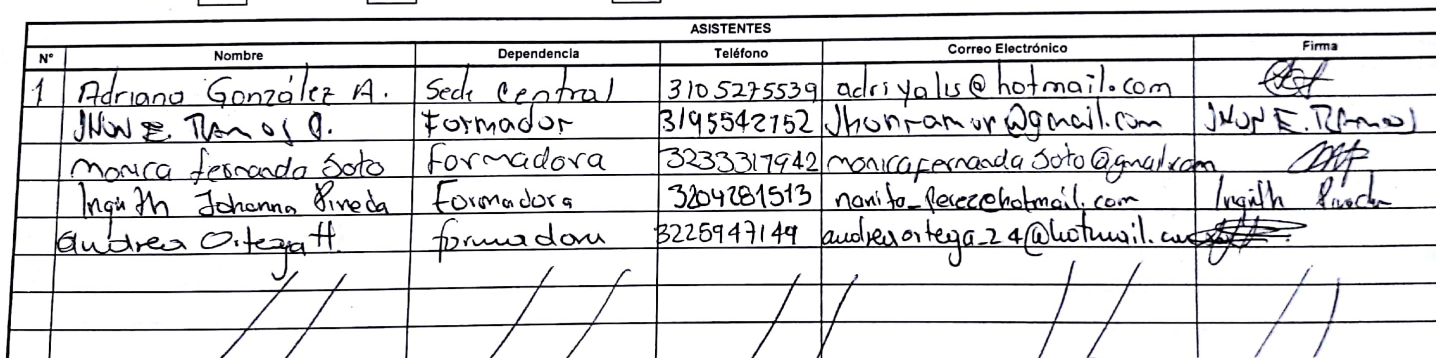 ASISTENTES
N° Nombre Dependencia Teléfono Correo Electrónico Firma
1 Adriano González A. Sede Central 3105275539 adriyalis@hotmail.com
JHON E. RAMOS Q. Formador 3195542752 Jhonramor@gmail.com JHON E. RAMOS
Monica fernanda Soto formadora 3233317942 monicafernanda Soto@gmail.com
Ingrith Johanna Pineda Formadora 3204281513 nanito_Perez@hotmail.com Ingrith Pineda
andrea Ortega H. formadora 3225947149 andreaortega_24@hotmail.com